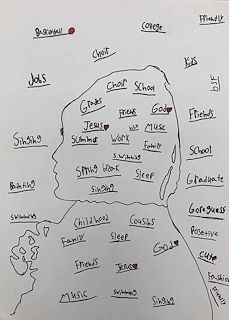 Friendly
Basketball
College
Choir
Kids
Jobs
Choir
School
BSF
Grades
Friends
God
Friends
Jesus
Music
Singing
Summer
Work
Family
School
Swimming
Spring break
Sleep
Graduate
Painting
Singing
Gorgeous
Swimming
Childhood
Cousins
Positive
Family
Sleep
God
Cute
Friends
Jesus
Fashion
Music
Swimming
Singing